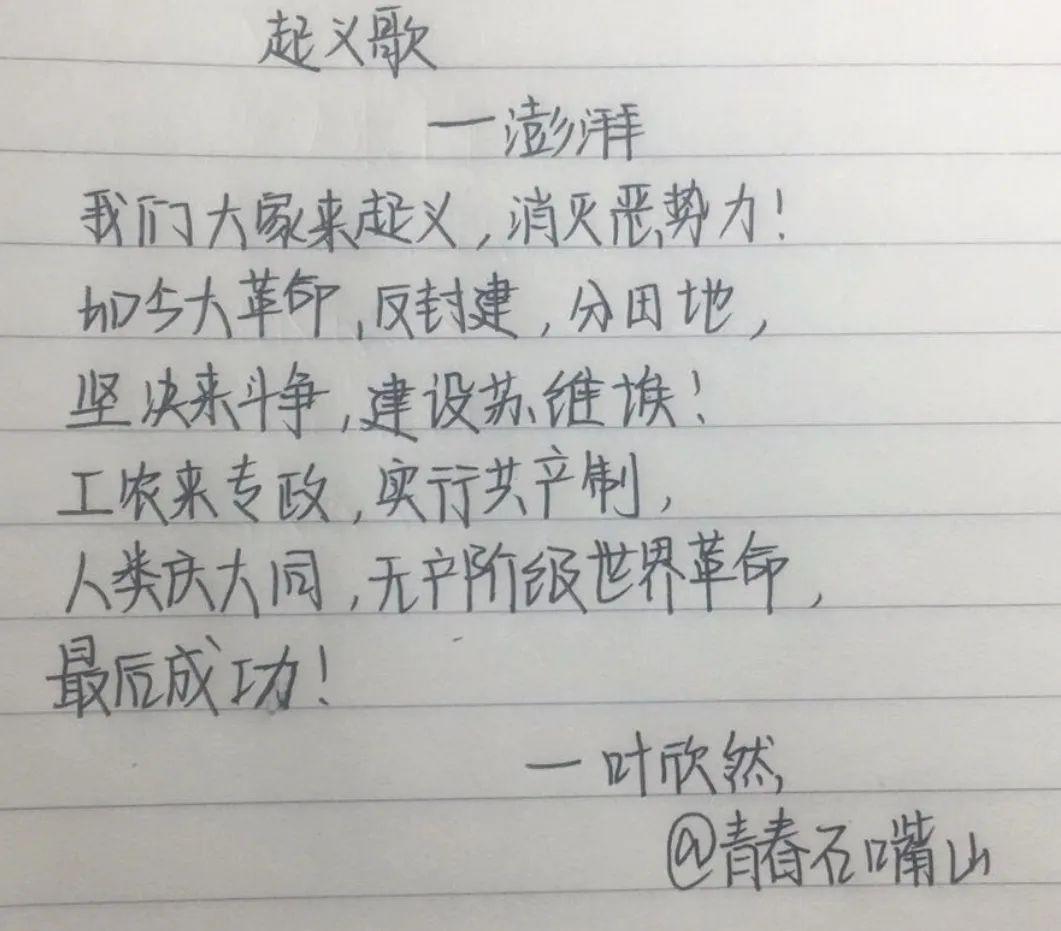 起义歌
一澎湃
我们大家来起义,消灭恶势力!
如今大革命,反封建,分田地,
坚决来斗争,建设苏维埃!
工农来专政,实行共产制,
人类庆大同,无产阶级世界革命,
最后成功!
一叶欣然
@青春石嘴山